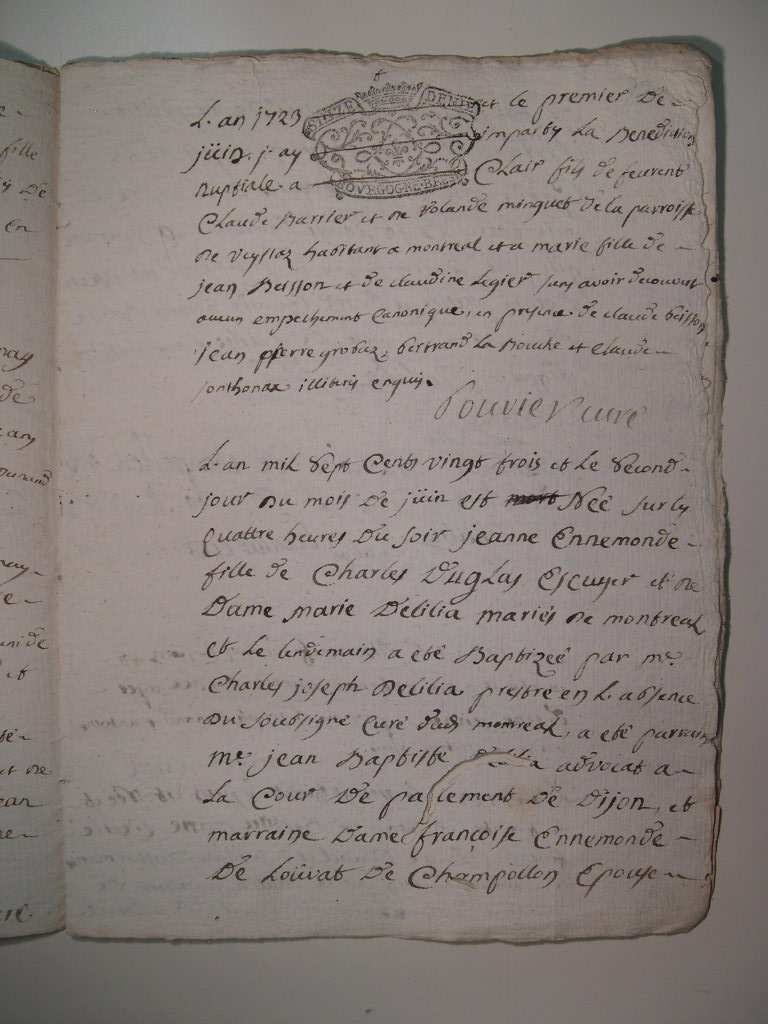 L'an 1723 et le premier de
juin j'ay imparty la benediction
nuptiale a Clair fils de feu
Claude Barrier et de rolande minguet de la parroisse
de veyziaz habitant a montreal et a marie fille de
jean Buisson et de claudine Legier sans avoir decouvert
aucun empechement Canonique, en presence de claude
jean pierre grobaz, bertrand La et Claude
jonthonax illiteris enquis.
Bouvier curé
L'an mil sept Cents vingt trois et le second
jour du mois de juin est Née sur les
quattre heures du soir jeanne Ennemonde
fille de Charles Duglas Escuyer et de
Dame marie Delilia mariés de montreal
et le lendemain a eté Baptizeé par mr.
Charles joseph Delilia prestre en L'absence
du soubsigné Curé dud. montreal, a eté parrain
mr. jean Baptiste advocat a
La Cour De parlement De Dijon, et
marraine Dame françoise Ennemonde
De Loüvat De Champollon Epouse
GENE
DEN
BOVRGOGNE BRESSE
ille
en
ay
de
and
ay
e
et
jean